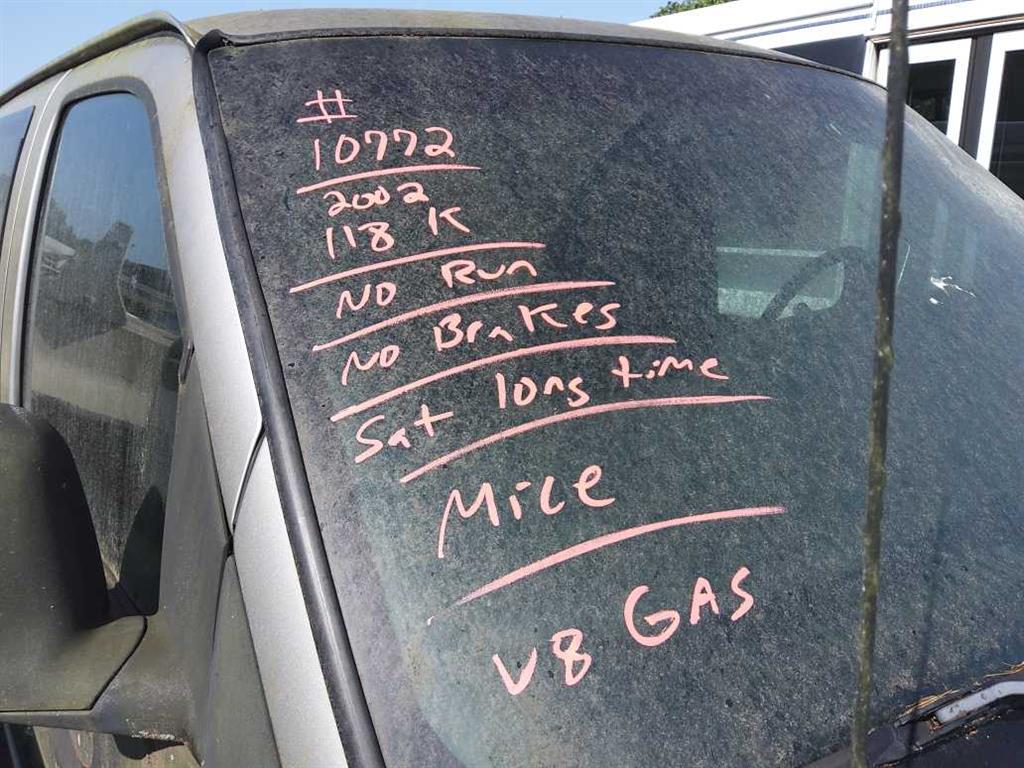 #
10772
2002
118 K
NO Run
NO Brakes
Sat long time
Mice
V8 GAS